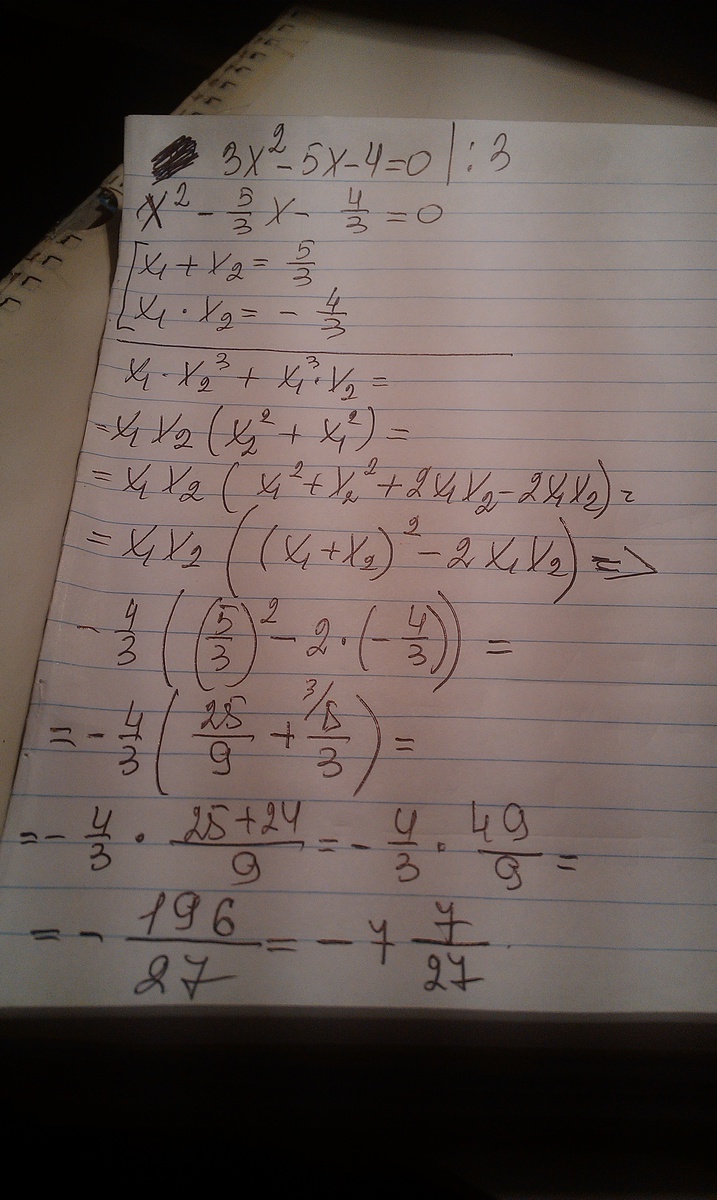 3x² - 5x - 4 = 0 | : 3
x² - 5/3 x - 4/3 = 0
[ x₁ + x₂ = 5/3
x₁ · x₂ = - 4/3
x₁ · x₂³ + x₁³ · x₂ =
= x₁ x₂ (x₂² + x₁²) =
= x₁ x₂ (x₁² + x₂² + 2x₁x₂ - 2x₁x₂) =
= x₁ x₂ ((x₁ + x₂)² - 2 x₁ x₂) =>
- 4/3 ((5/3)² - 2 · (- 4/3)) =
= - 4/3 (25/9 + ³/ 8/3) =
= - 4/3 · (25+24)/9 = - 4/3 · 49/9 =
= - 196/27 = - 7 7/27 .